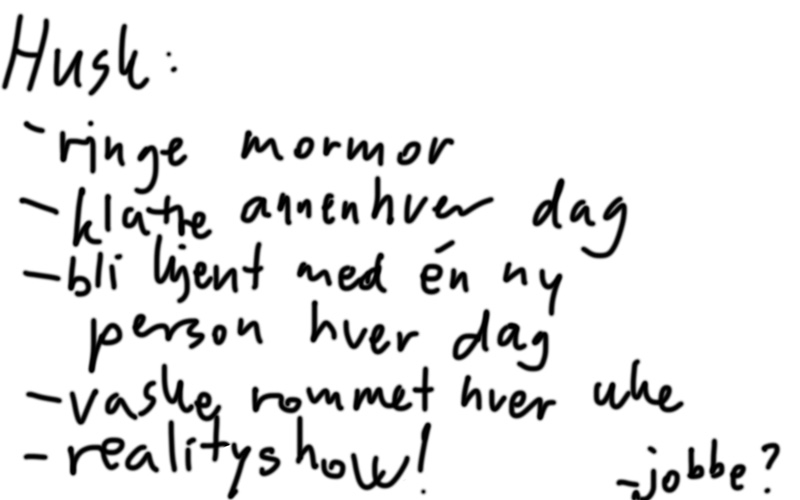 Husk:
- ringe mormor
- klatre annenhver dag
- bli kjent med én ny
person hver dag
- vaske rommet hver uke
- realityshow!
- jobbe?